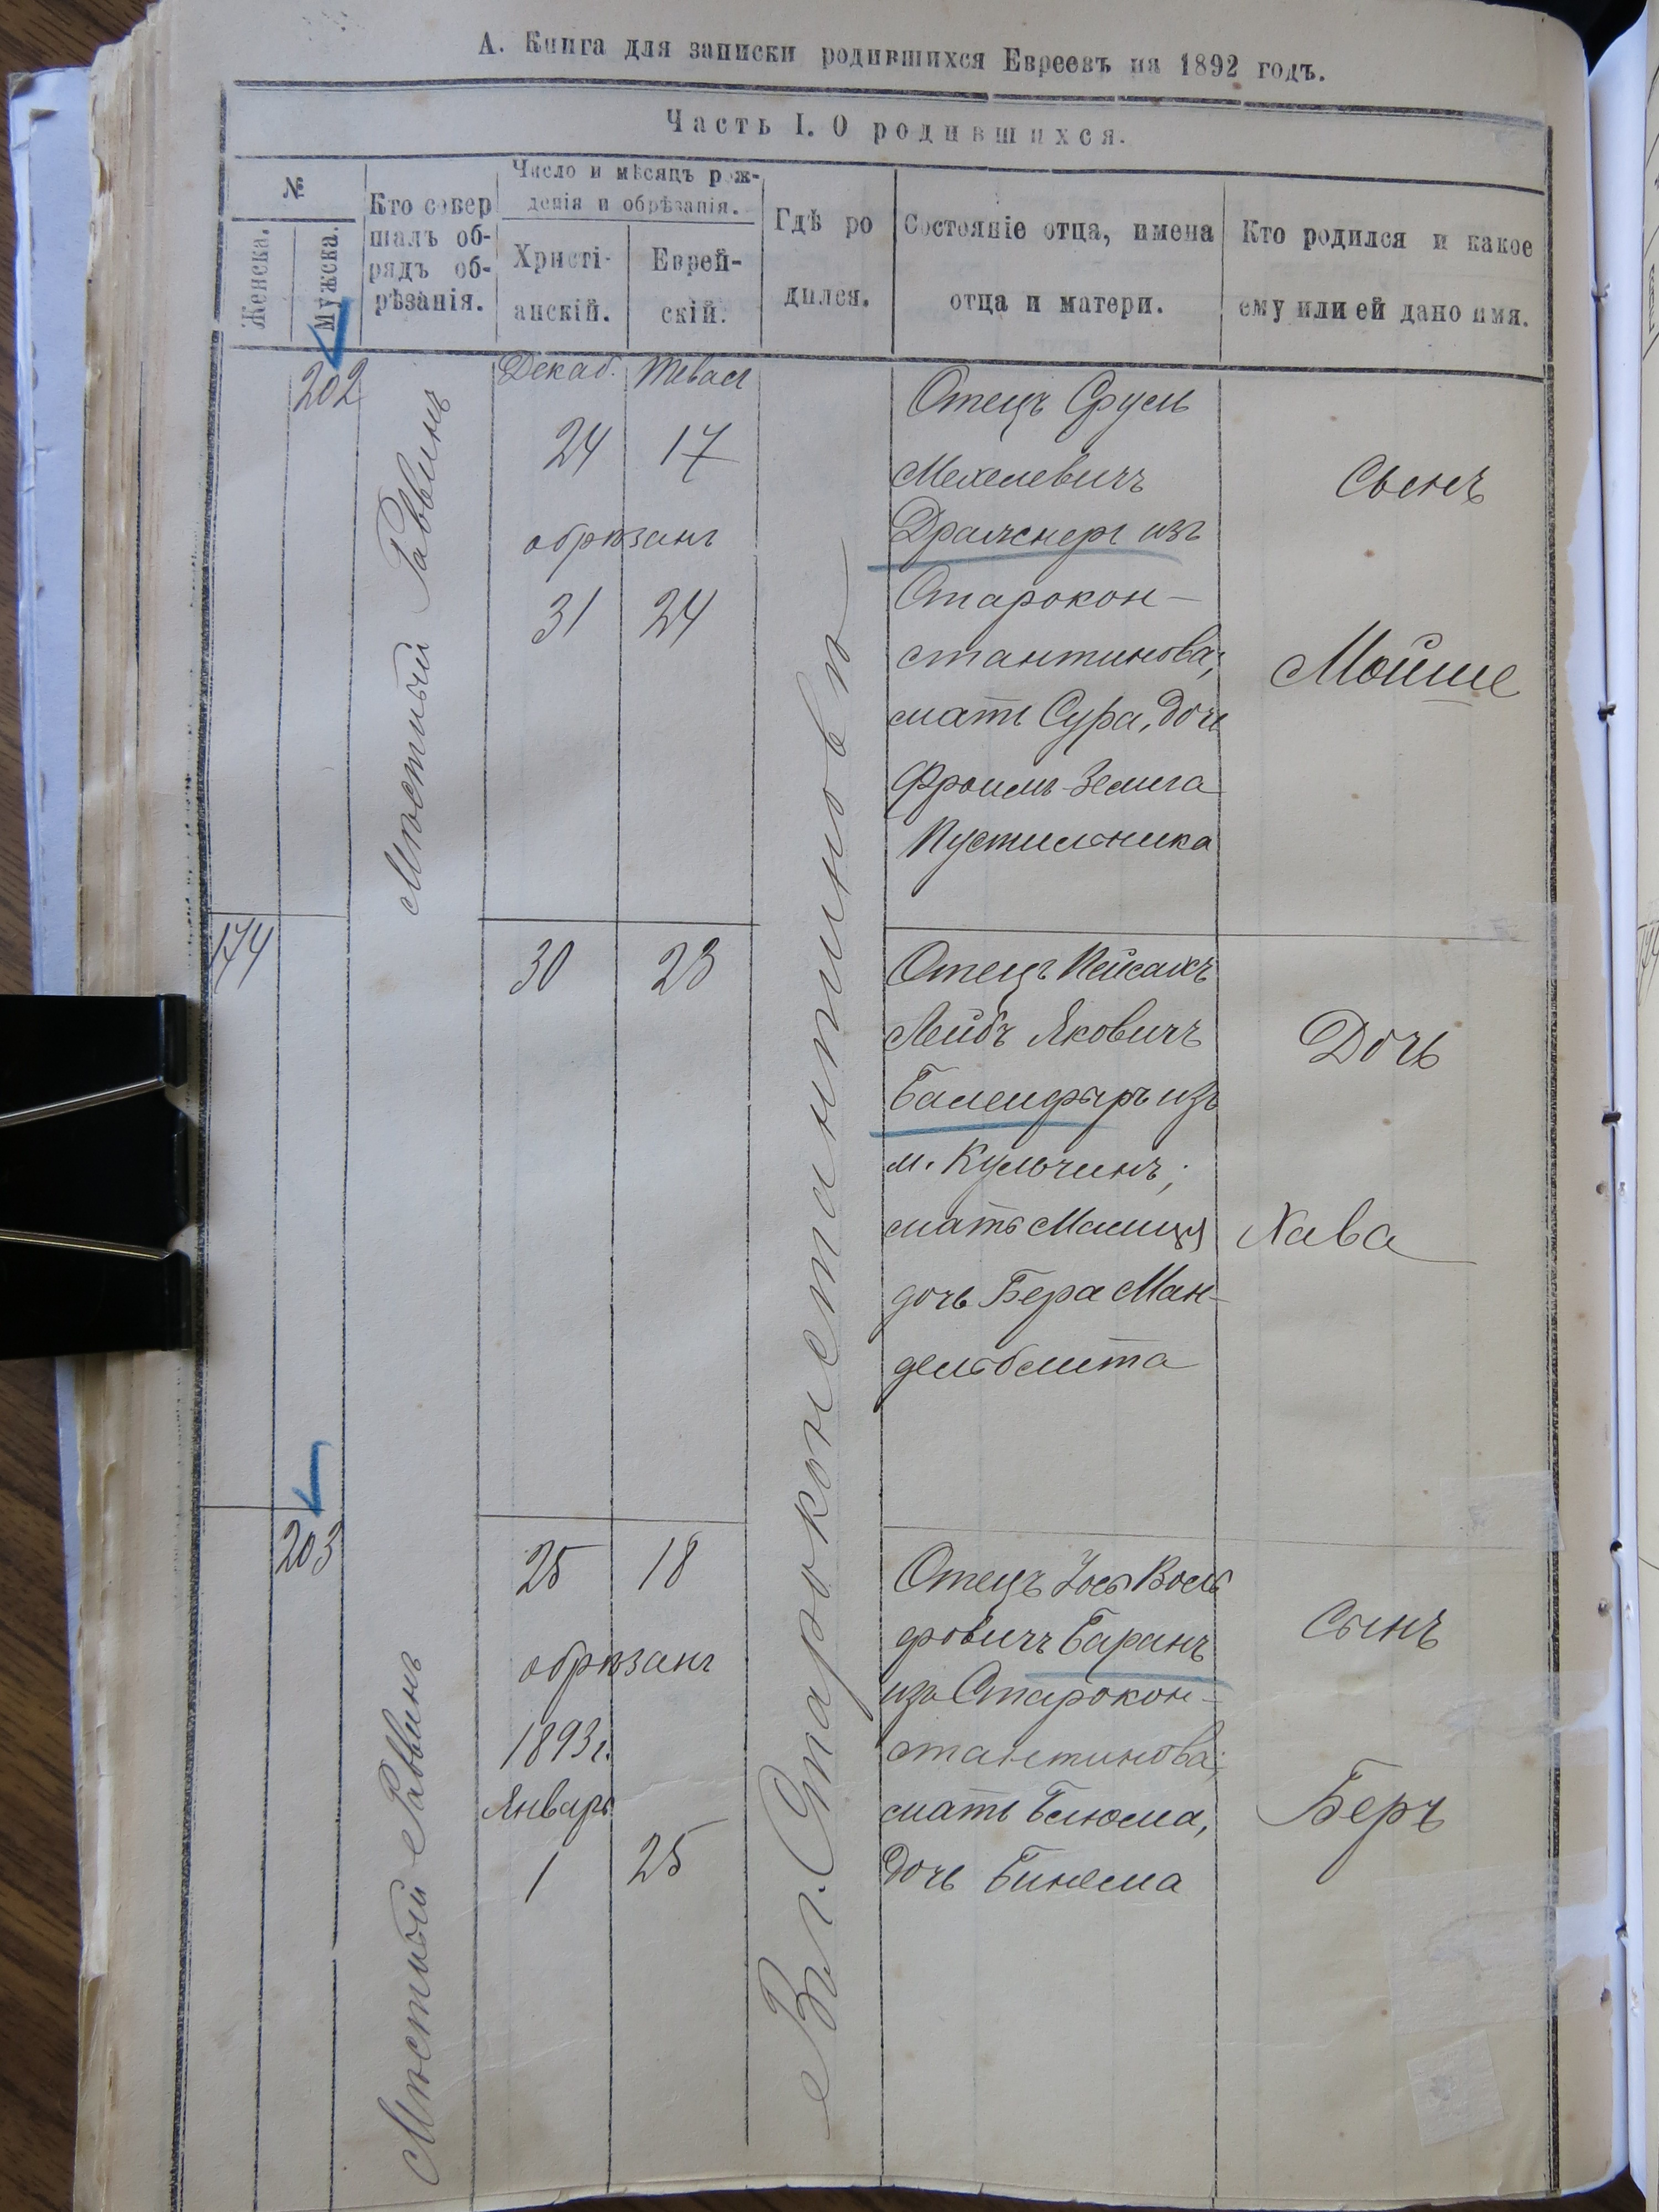 А. Книга для записки родившихся Евреевъ на 1892 годъ.
Часть I. О родившихся.
№
Женска.
Мужска.
Кто совер
шалъ об-
рядъ об-
рѣзанія.
Число и мѣсяцъ рож-
денія и обрѣзанія.
Христі-
анскій.
Еврей-
скій.
Гдѣ ро
дился.
Состояніе отца, имена
отца и матери.
Кто родился и какое
ему или ей дано имя.
202
Мѣстный Раввинъ
Декаб. Тевас
24 17
обрѣзанъ
31 24
Отецъ Сруль
Мехелевичъ
Дралснеръ изъ
Старокон-
стантинова;
мать Сура, дочь
Фроимъ-Зелига
Пустильника
Сынъ
Мойше
174
30 23
Отецъ Пейсахъ
Лейбъ Яковичъ
из
м. Кульчинъ;
мать Малця
дочь Бера Ман-
дельблита
Дочь
Хава
203
Мѣстный Раввинъ
25 18
обрѣзанъ
1893 г.
Январь
1 25
Отецъ Іось Воль
фовичъ Баранъ
изъ Старокон-
стантинова;
мать Блюма,
дочь Бинема
Сынъ
Беръ
В г. Староконстантиновѣ